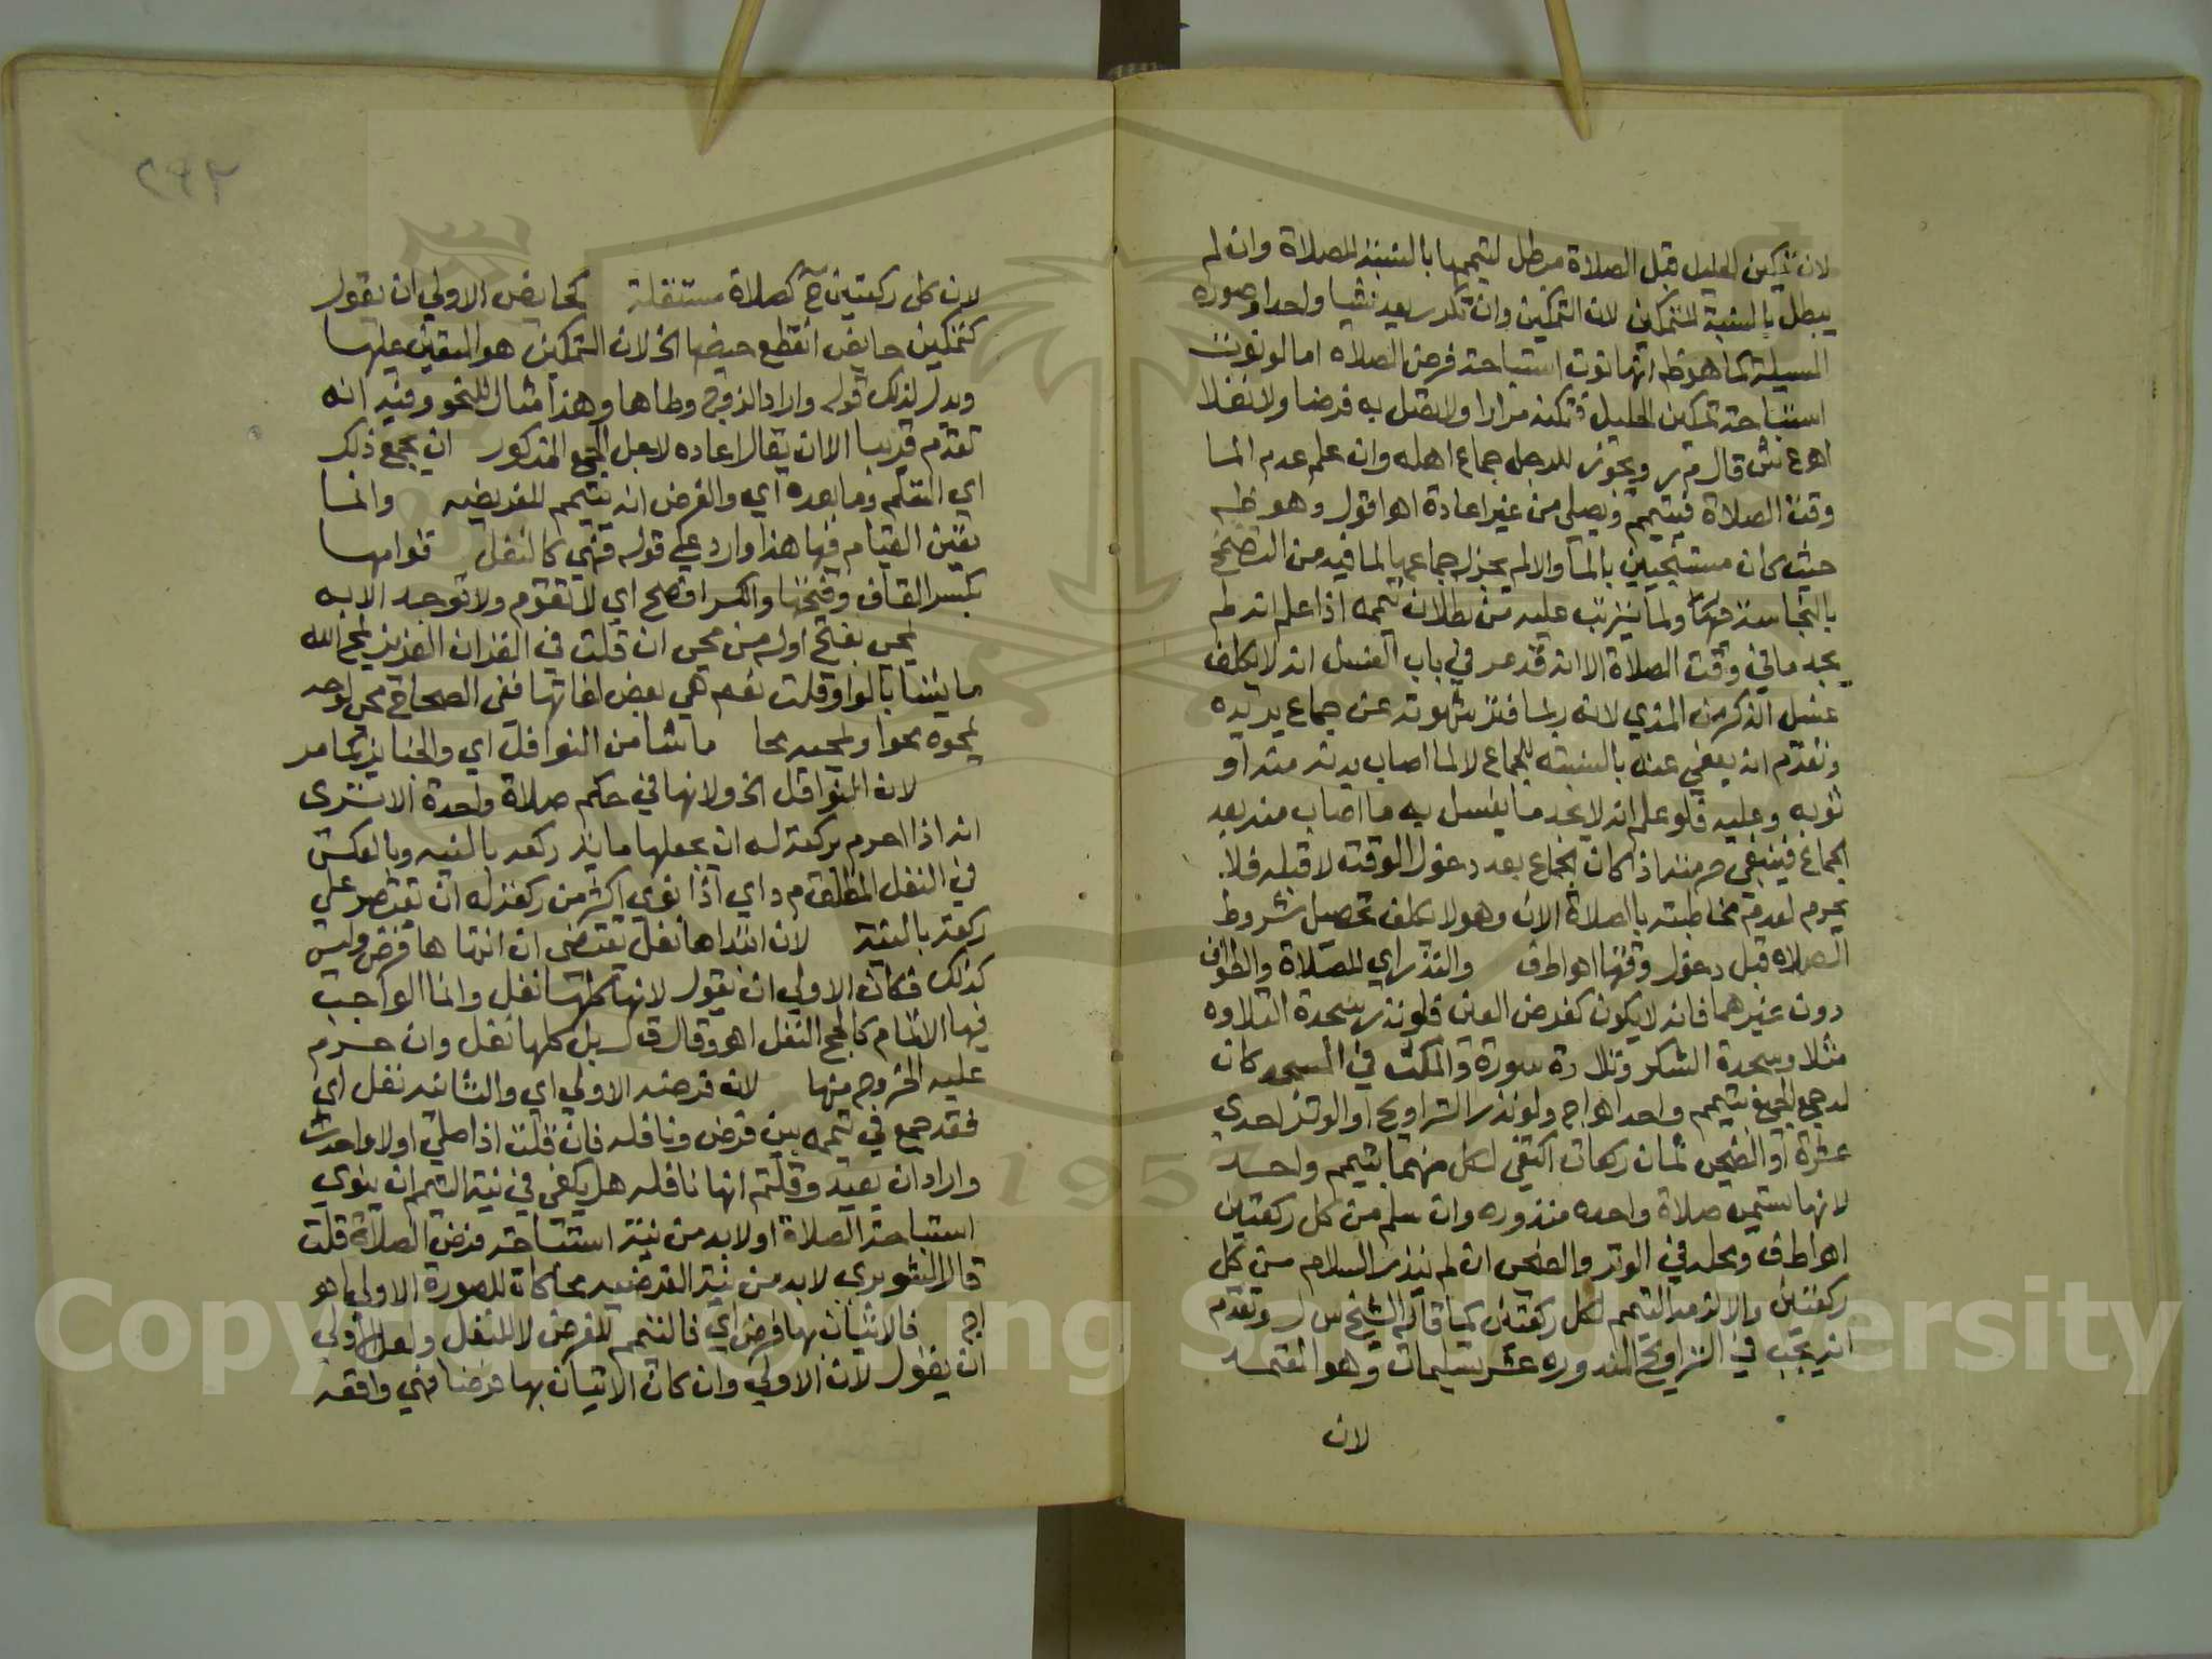 لان تمكين الحليل قبل الصلاة مبطل لتيممها بالنسبة للصلاة وان لم
يبطل بالنسبة للتمكين لان التمكين وان تكرر يعد شيا واحدا وصورة
المسيلة كما هو ظ انها نوت استباحة فرض الصلاه اما لو نوت
استباحة تمكين الحليل فتمكنه مرارا ولا تصل به فرضا ولا نفلا
اهـ ع ش قال م ر ويجوز للرجل جماع اهله وان علم عدم الما
وقت الصلاة فيتيمم ويصلي من غير اعادة اهـ اقول وهو ظ
حيث كان مستنجيين بالما والا لم يجز له جماعها لما فيه من التضمخ
بالنجاسة ولما يترتب عليه من بطلان تيممه اذا علم انه لم
يجد ما في وقت الصلاة الا انه قد مر في باب الغسل انه لا يكلف
غسل الذكر من المذي لانه ربما فتر شهوته عن جماع يريده
وتقدم انه يعفي عنه بالنسبته للجماع لا لما اصاب بدنه منه او
ثوبه وعليه فلو علم انه لا يجد ما يغسل به ما اصاب منه بعد
الجماع فينبغي حرمته اذ كان الجماع بعد دخول الوقت لا قبله فلا
يحرم لعدم مخاطبته بالصلاة الان وهو لا يكلف تحصيل شروط
الصلاه قبل دخول وقتها اهـ اط ف والنذر اي للصلاة والطواف
دون غيرهما فانه لا يكون كفرض العين فلو نذر سجدة التلاوه
مثلا وسجدة الشكر وتلاوة سورة والمكث في المسجد كان
له جمع الجميع بتيمم واحد اهـ اج ولو نذر التراويح او الوتر احدي
عشرة او الضحى ثمان ركعات اكتفي لكل منهما بتيمم واحد
لانها تسمى صلاة واحده منذوره وان سلم من كل ركعتين
اهـ اط ف ومحله في الوتر والضحى ان لم ينذر السلام من كل
ركعتين والا لزمه التيمم لكل ركعتين كما قاله الشيخ س ل وتقدم
انه يجب في التراويح المنذوره عشر تسليمات وهو المعتمد
لان
٢٩٢
لان كل ركعتين ح كصلاة مستقلة كحايض الاولي ان يقول
كتمكين حايض انقطع حيضها الخ لان التمكين هو المقيس عليها
ويدل لذلك قوله واراد الزوج وطاها وهذا مثال للنحو وفيه انه
تقدم قريبا الا ان يقال اعاده لاجل الجمع المذكور ان يجمع ذلك
اي التيمم وما بعده اي والفرض انه يتيمم للفريضه وانما
تعين القيام فيها هذا وارد علي قوله فهي كالنفل قوامها
بكسر القاف وفتحها والكسر افصح اي لا تقوم ولا توجد الا به
يمحى بفتح اوله من محى ان قلت في القران العزيز يمحو الله
ما يشا بالواو قلت نعم هي بعض لغاتها ففي الصحاح محى لوحه
يمحوه محوا ويمحيه محيا ما شا من النوافل اي والجنايز كما مر
لان النوافل الخ ولانها في حكم صلاة واحدة الا ترى
انه اذا احرم بركعة له ان يجعلها ماية ركعة بالنيه وبالعكس
في النفل المطلق م د اي اذا نوي اكثر من ركعة له ان يقتصر علي
ركعة بالنية لان ابتداها نفل يقتضى ان انتها ها فرض وليس
كذلك فكان الاولي ان يقول لانها كلها نفل وانما الواجب
فيها الاتمام كالحج النفل اهـ وقال ق ل بل كلها نفل وان حرم
عليه الخروج منها لان فرضه الاولي اي والثانية نفل اي
فقد جمع في تيممه بين فرض ونافله فان قلت اذا صلى اولا واحدث
واراد ان يعيد وقلتم انها نافله هل يكفي في نية التيمم ان ينوي
استباحة الصلاة او لابد من نية استباحة فرض الصلاة قلت
قال الشوبري لابد من نية الفرضيه محاكاة للصورة الاولي اهـ
اج فالاتيان بها فرض اي فالتيمم للفرض لا للنفل ولعل الاولي
ان يقول لان الاولي وان كان الاتيان بها فرضا فهي واقعه